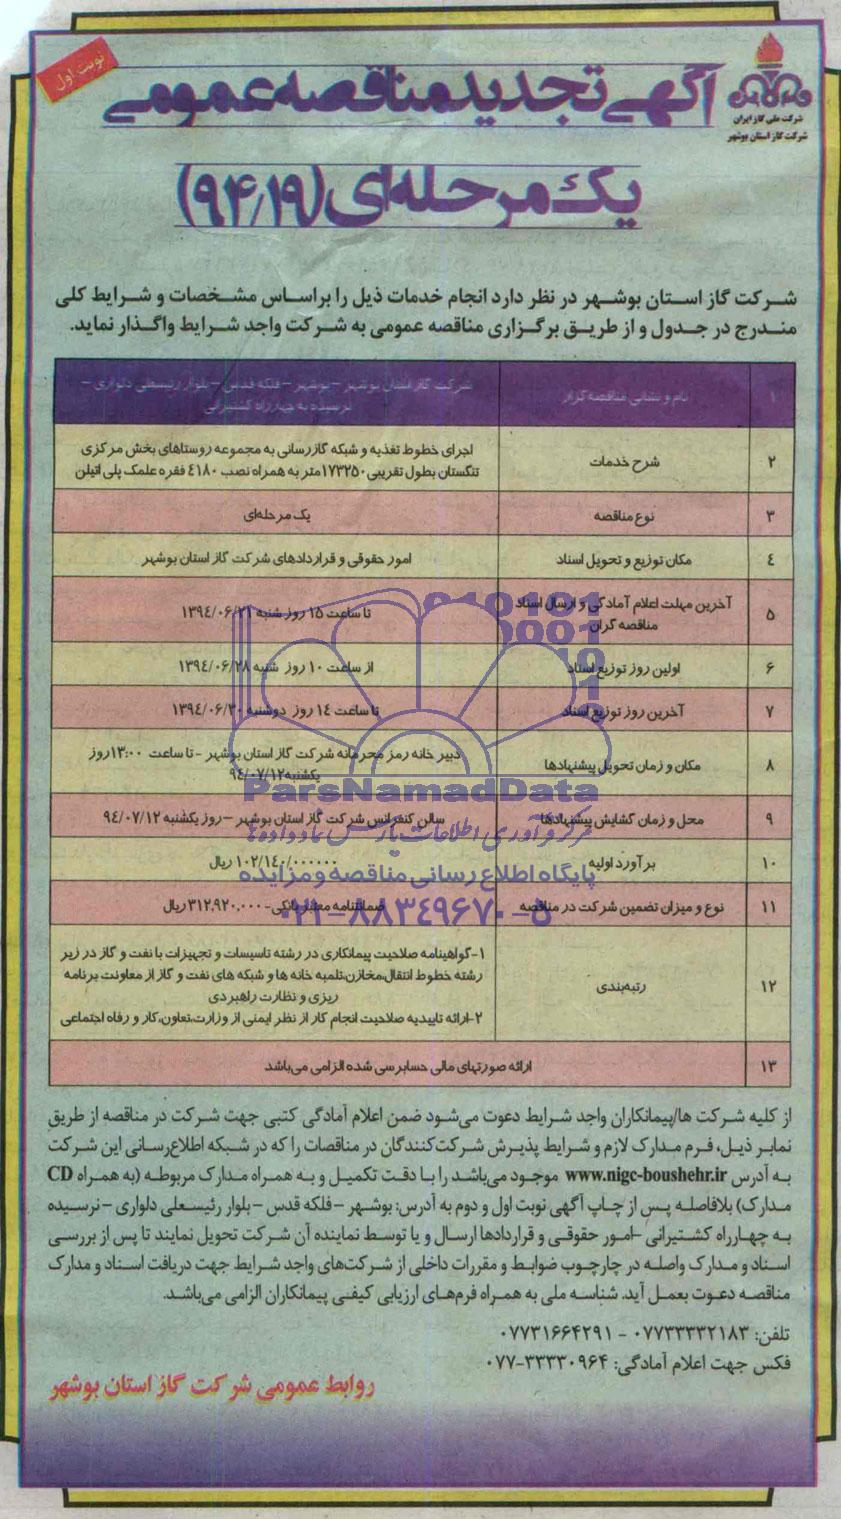 نوبت اول
شرکت ملی گاز ایران
شرکت گاز استان بوشهر
آگهی تجدید مناقصه عمومی
یک مرحله‌ای (۹۴/۱۹)
شرکت گاز استان بوشهر در نظر دارد انجام خدمات ذیل را براساس مشخصات و شرایط کلی
مندرج در جدول و از طریق برگزاری مناقصه عمومی به شرکت واجد شرایط واگذار نماید.
۱ نام و نشانی مناقصه‌گزار شرکت گاز استان بوشهر – بوشهر – فلکه قدس – بلوار رئیسعلی دلواری –
نرسیده به چهارراه کشتیرانی
۲ شرح خدمات اجرای خطوط تغذیه و شبکه گازرسانی به مجموعه روستاهای بخش مرکزی
تنگستان بطول تقریبی ۱۷۳۲۵۰متر به همراه نصب ٤۱۸۰ فقره علمک پلی اتیلن
۳ نوع مناقصه یک مرحله‌ای
٤ مکان توزیع و تحویل اسناد امور حقوقی و قراردادهای شرکت گاز استان بوشهر
۵ آخرین مهلت اعلام آمادگی و ارسال اسناد
مناقصه گران تا ساعت ۱۵ روز شنبه ۱۳۹٤/۰۶/۲۱
۶ اولین روز توزیع اسناد از ساعت ۱۰ روز شنبه ۱۳۹٤/۰۶/۲۸
۷ آخرین روز توزیع اسناد تا ساعت ۱٤ روز دوشنبه ۱۳۹٤/۰۶/۳۰
۸ مکان و زمان تحویل پیشنهادها دبیر خانه رمز محرمانه شرکت گاز استان بوشهر - تا ساعت ۱۳:۰۰روز
یکشنبه ۹٤/۰۷/۱۲
۹ محل و زمان گشایش پیشنهادها سالن کنفرانس شرکت گاز استان بوشهر – روز یکشنبه ۹٤/۰۷/۱۲
۱۰ برآورد اولیه ۱۰۲/۱٤۰/۰۰۰۰۰۰ ریال
۱۱ نوع و میزان تضمین شرکت در مناقصه ضمانتنامه معتبر بانکی- ۳۱۲،۹۲۰،۰۰۰ریال
۱۲ رتبه‌بندی ۱-گواهینامه صلاحیت پیمانکاری در رشته تاسیسات و تجهیزات با نفت و گاز در زیر
رشته خطوط انتقال،مخازن،تلمبه خانه ها و شبکه های نفت و گاز از معاونت برنامه
ریزی و نظارت راهبردی
۲-ارائه تاییدیه صلاحیت انجام کار از نظر ایمنی از وزارت،تعاون،کار و رفاه اجتماعی
۱۳ ارائه صورتهای مالی حسابرسی شده الزامی می‌باشد
ParsNamadData
مرکز فرآوری اطلاعات پارس نماد داده‌ها
پایگاه اطلاع رسانی مناقصه و مزایده
۰۲۱-۸۸۳۴۹۶۷۰-۵
از کلیه شرکت ها/پیمانکاران واجد شرایط دعوت می‌شود ضمن اعلام آمادگی کتبی جهت شرکت در مناقصه از طریق
نمابر ذیل، فرم مدارک لازم و شرایط پذیرش شرکت‌کنندگان در مناقصات را که در شبکه اطلاع‌رسانی این شرکت
به آدرس www.nigc-boushehr.ir موجود می‌باشد را با دقت تکمیل و به همراه مدارک مربوطه (به همراه CD
مدارک) بلافاصله پس از چاپ آگهی نوبت اول و دوم به آدرس: بوشهر – فلکه قدس – بلوار رئیسعلی دلواری – نرسیده
به چهارراه کشتیرانی –امور حقوقی و قراردادها ارسال و یا توسط نماینده آن شرکت تحویل نمایند تا پس از بررسی
اسناد و مدارک واصله در چارچوب ضوابط و مقررات داخلی از شرکت‌های واجد شرایط جهت دریافت اسناد و مدارک
مناقصه دعوت بعمل آید. شناسه ملی به همراه فرم‌های ارزیابی کیفی پیمانکاران الزامی می‌باشد.
تلفن: ۰۷۷۳۳۳۳۲۱۸۳ - ۰۷۷۳۱۶۶۴۲۹۱
فکس جهت اعلام آمادگی: ۳۳۳۳۰۹۶۴-۰۷۷
روابط عمومی شرکت گاز استان بوشهر